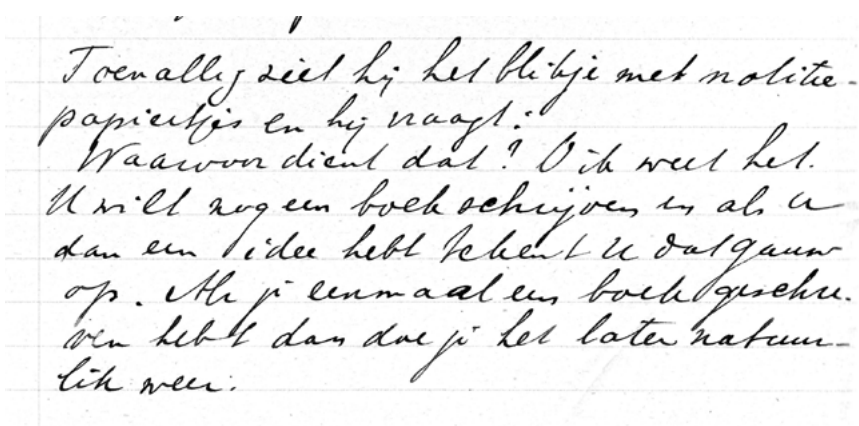 Toevallig ziet hij het blikje met notitie-
papiertjes en hij vraagt:
Waarvoor dient dat? O ik weet het.
U wilt nog een boek schrijven en als u
dan een idee hebt tekent u dat gauw
op. Als je eenmaal een boek geschre-
ven hebt dan doe je het later natuur-
lik weer.